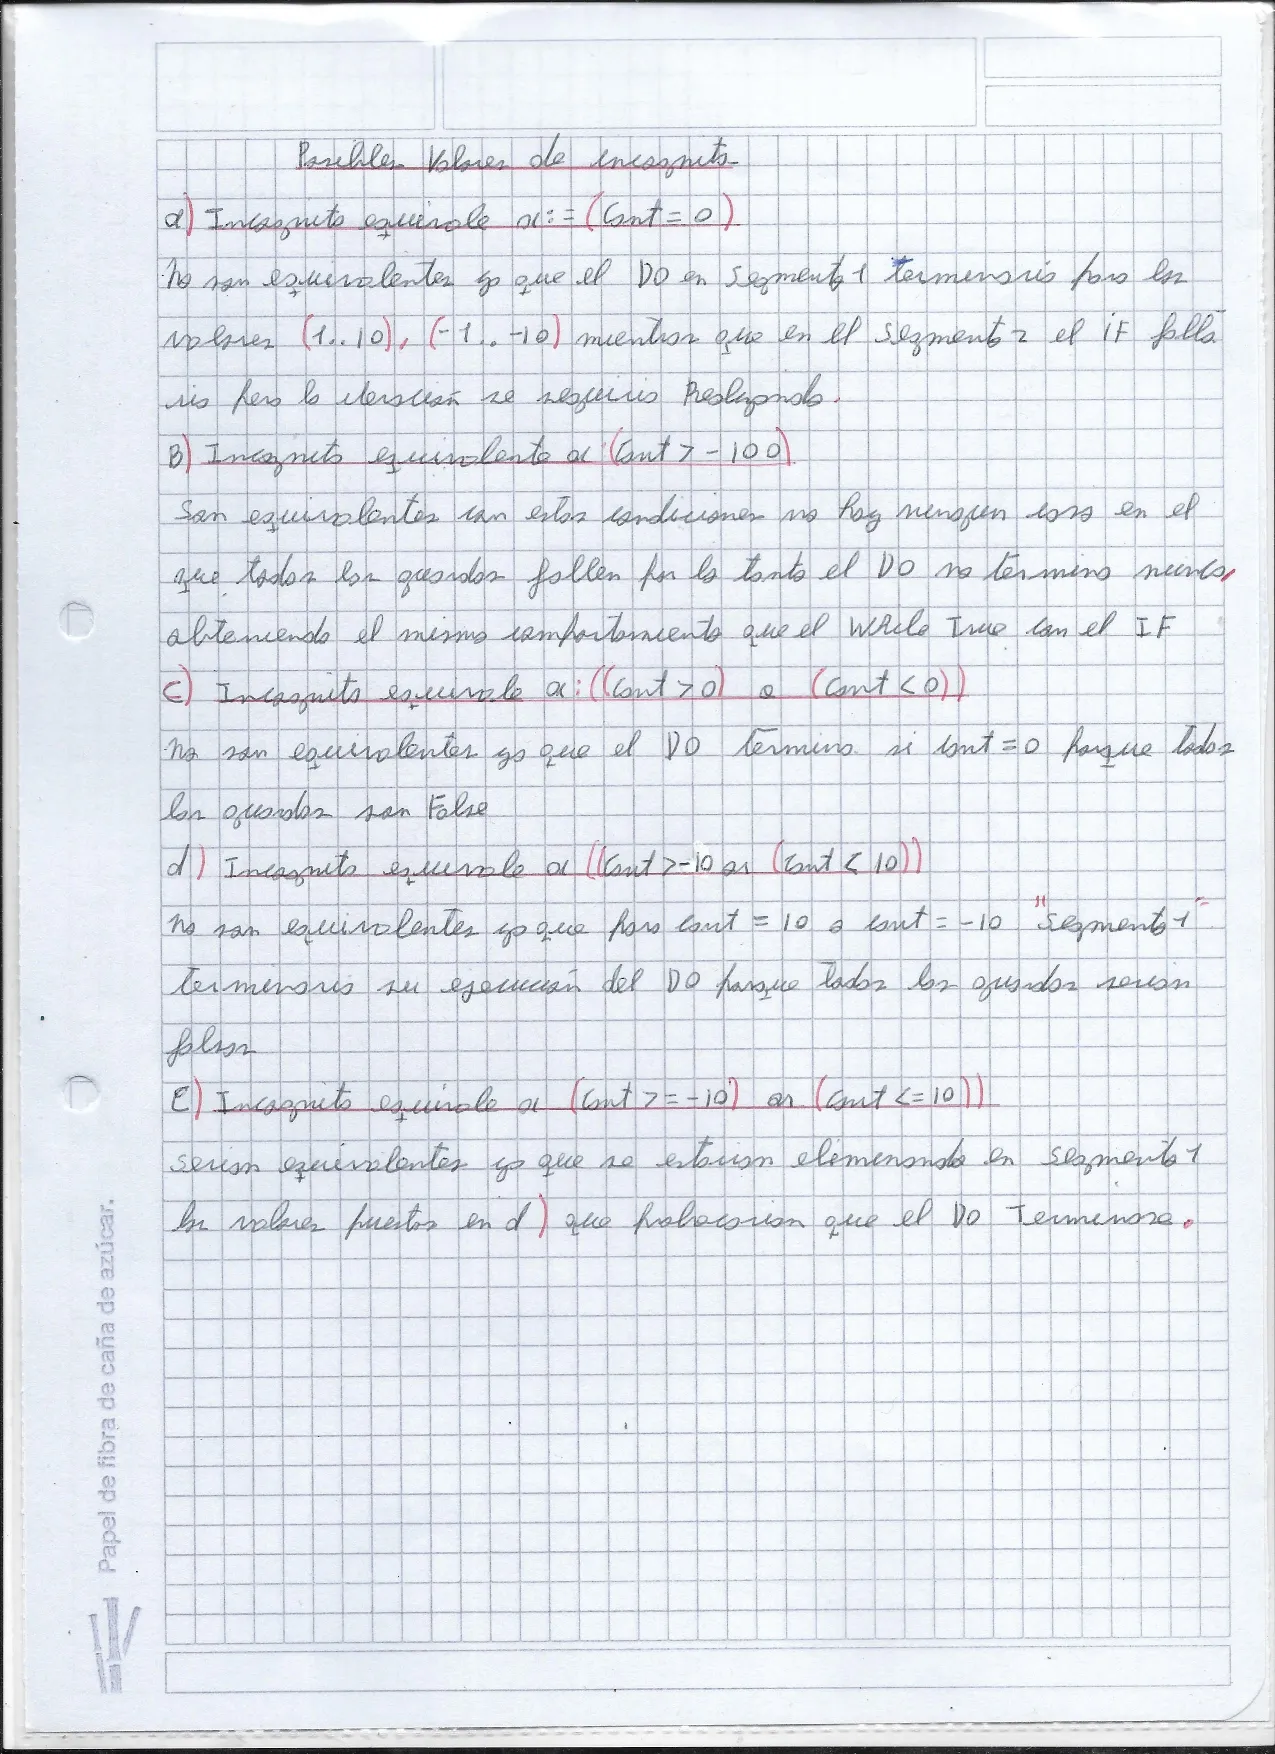 Posibles Valores de incognita
a) Incognita equivale a := (Cont = 0)
No son equivalentes ya que el DO en Segmento 1 terminaria para los
valores (1..10), (-1..-10) mientras que en el segmento 2 el IF falla
ria pero la iteración se seguiria Realizando.
B) Incognita equivalente a (Cont > -100)
Son equivalentes con estas condiciones no hay ninguen caso en el
que todas las guardas fallen por lo tanto el DO no termina nunca,
obteniendo el mismo comportamiento que el While True con el IF
C) Incognita equivale a: ((Cont > 0) o (Cont < 0))
No son equivalentes ya que el DO termina si cont = 0 porque todas
las guardas son False
d) Incognita equivale a ((Cont > -10 or (Cont < 10))
No son equivalentes ya que para cont = 10 o cont = -10 "Segmento 1"
terminaria su ejecución del DO porque todas las guardas serian
falsas
E) Incognita equivale a (Cont >= -10) or (Cont <= 10))
serian equivalentes ya que se estarian eliminando en segmento 1
los valores puestos en d) que probocarian que el DO Terminase.
Papel de fibra de caña de azúcar.